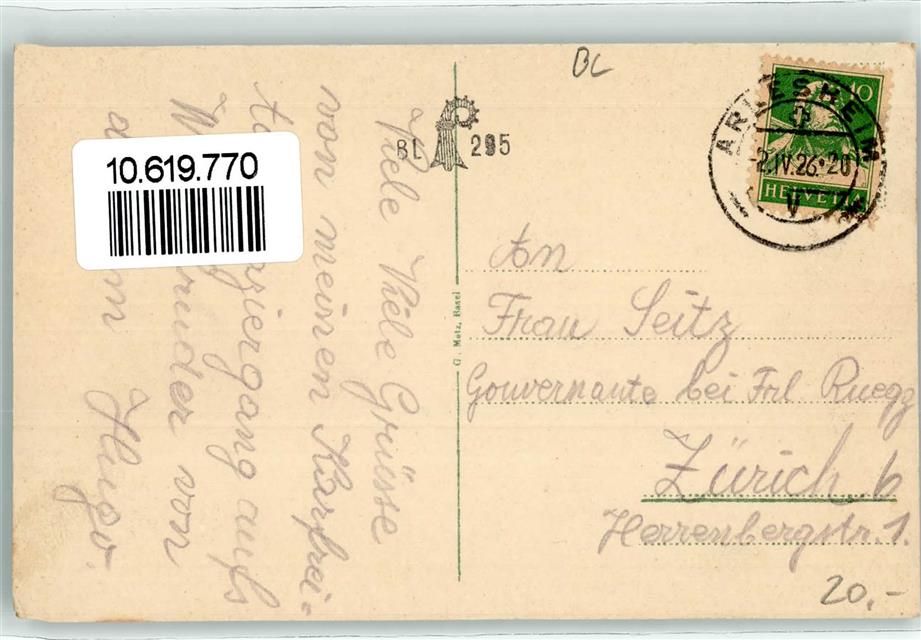 BL
10.619.770
BL 295
10
HELVETIA
ARLESHEIM
2.IV.26.20
V
G. Metz, Basel
Viele Viele Grüsse
von meinen Karfrei=
aufs
von
Hugo.
An
Frau Seitz
Gouvernante bei Frl Ruegg
Zürich 6
Herrenbergstr. 1.
20.-